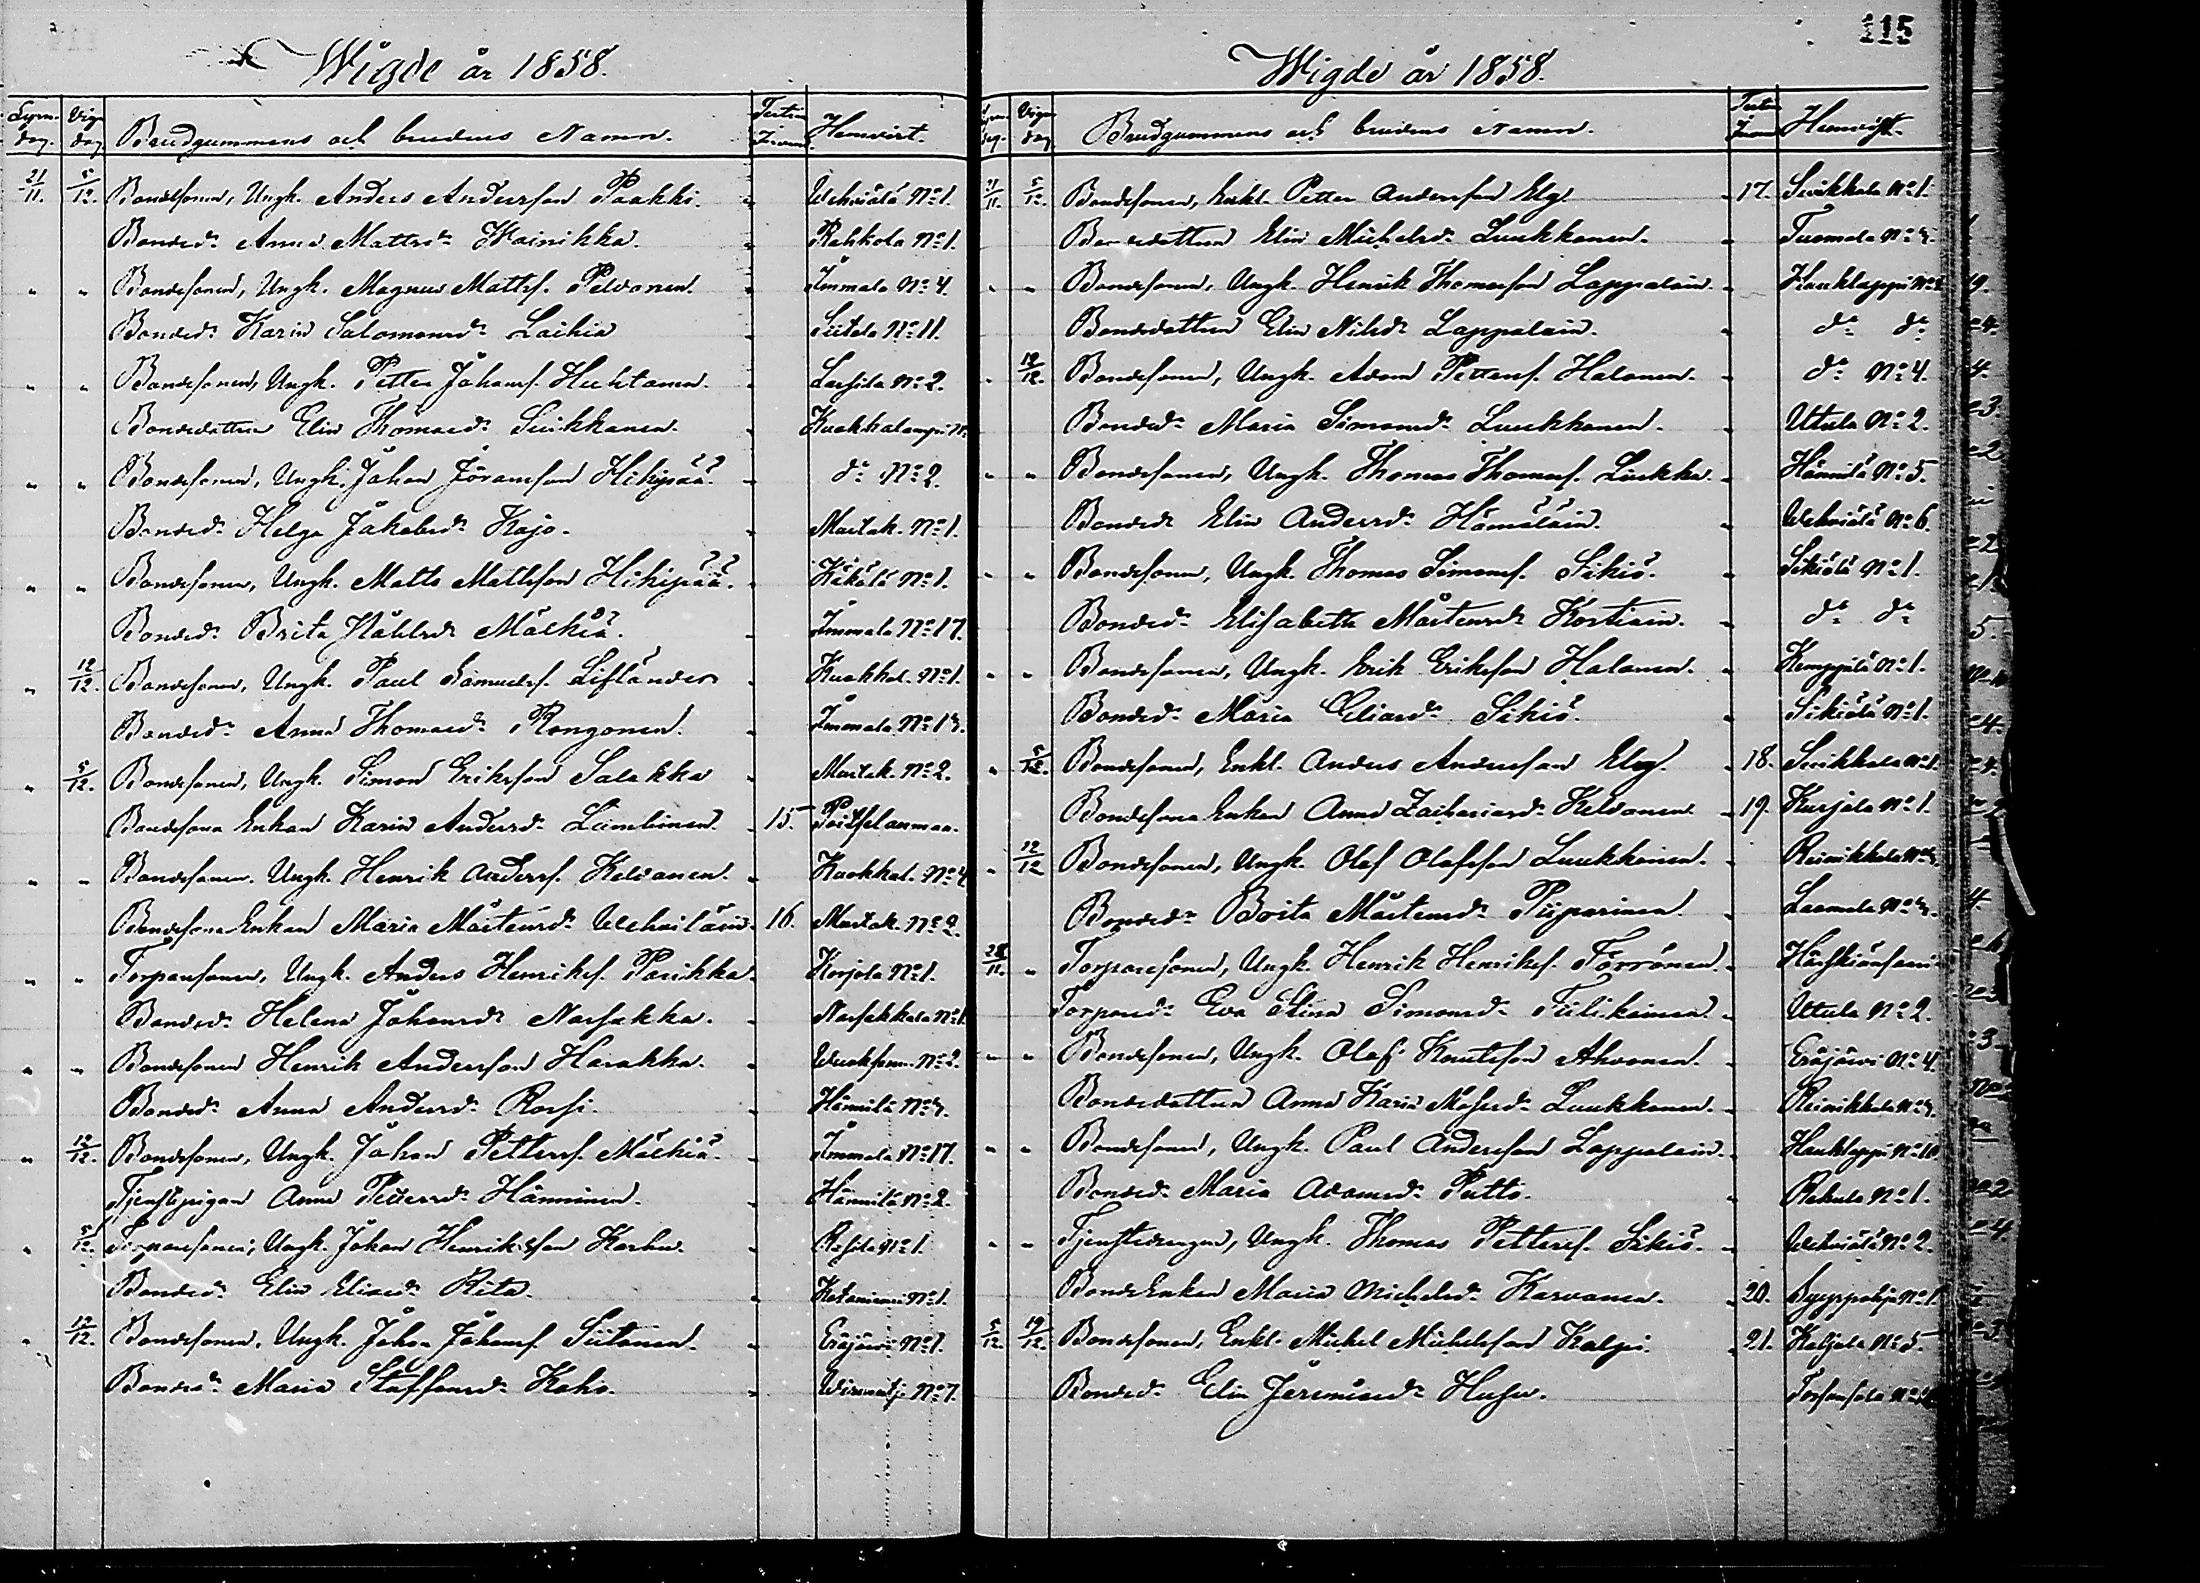 115
Wigde år 1858.
Lysn. dag. Vig. dag Brudgummens och brudens Namn. Hemvist.
21/11. 5/12. Bondesonen, Ungk. Anders Andersson Paakki. Wehviälä No 1.
Bonded. Anna Mattsdr Wainikka. Rahkola No 1.
" " Bondesonen, Ungk. Magnus Mattss. Pelvonen. Immala No 4.
Bonded. Karin Salomonsdr Laihia Siitola No 11.
" " Bondesonen, Ungk. Petter Johanss. Huhtanen. Lassila No 2.
Bondedottren Elin Thomasdr Suikkanen. Kuokkalampi No
" " Bondesonen, Ungk. Johan Jöransson Hihipää. do No 2.
Bonded. Helga Jakobsdr Kajo. Maitak. No 1.
" " Bondesonen, Ungk. Matts Mattsson Hihipää. Käkälä No 1.
Bonded. Brita Påhlsdr Mälkiä. Immala No 17.
" 12/12. Bondesonen, Ungk. Paul Samuelss. Lifländer Kuokkal. No 1.
Bonded. Anna Thomasdr Rongonen. Immala No 13.
" 5/12. Bondesonen, Ungk. Simon Eriksson Salakka Maitak. No 2.
Bondesons Enkan Karin Andersdr Lämbinen. 15. Poitselanmaa.
" " Bondesonen. Ungk. Henrik Anderss. Kelvanen. Kuokkal. No 4
Bondesons Enkan Maria Mårtensdr Wehviläin. 16. Maitak. No 2.
" " Torparesonen, Ungk. Anders Henrikss. Parikka. Korjola No 1.
Bonded. Helena Johansdr Narsakka. Narsakkala No 1
" " Bondesonen Henrik Andersson Harakka. Wuoksen. No 2.
Bonded. Anna Andersdr Rossi. Hännilä No 3.
" 12/12. Bondesonen, Ungk. Johan Petterss. Mälkiä. Immala No 17.
Tjenstepigan Anna Pettersdr Hänninen. Hännilä No 2.
" 5/12. Torparesonen, Ungk. Johan Henriksson Karhu. Rasila No 1.
Bonded. Elin Eliasdr Rita. No 1.
" 12/12. Bondesonen, Ungk. Johan Johanss. Siitonen. Eräjärvi No 1.
Bonded. Maria Staffansdr Kaho. No 7.
Wigde år 1858.
Vign. dag Brudgummens och brudens Namn. Hemvist.
21/11. 5/12. Bondesonen, Enkl. Petter Andersson Elg. 17. Suikkala No 1.
Bondedottren Elin Michelsdr Luukkanen. Tuomala No 3.
" " Bondesonen, Ungk. Henrik Thomasson Lappalain. Hauklappi No
Bondedottren Elin Nilsdr Lappalain. do do
" 19/12. Bondesonen, Ungk. Adam Petterss. Halonen. do No 4.
Bonded. Maria Simonsdr Luukkanen. Utula No 2.
" " Bondesonen, Ungk. Thomas Thomass. Luukka. Hännilä No 5.
Bonded. Elin Andersdr Hämäläin. Wehviälä No 6.
" " Bondesonen, Ungk. Thomas Simonss. Sikiö. Sikiölä No 1.
Bonded. Elisabeth Mårtensdr Kostiain. do do
" " Bondesonen, Ungk. Erik Eriksson Halonen. Kemppilä No 1.
Bonded. Maria Eliasdr Sikiö. Sikiölä No 1.
" 5/12. Bondesonen, Enkl. Anders Andersson Elg. 18. Suikkala No 1.
Bondesons Enkan Anna Zachariasdr Kelvanen. 19. Kurjala No 1.
" 12/12 Bondesonen, Ungk. Olof Olofsson Luukkainen. Reinikkala No 3.
Bonded. Brita Mårtensdr Piiparinen. Laamala No 3.
28/11. " Torparesonen, Ungk. Henrik Henrikss. Törrönen.
Torpared. Eva Stina Simonsdr Tiilikainen. Utula No 2.
" " Bondesonen, Ungk. Olof Knutsson Ahvonen. Eräjärvi No 4.
Bondedottren Anna Karin Mosesdr Luukkanen. Reinikkala No 3.
" " Bondesonen, Ungk. Paul Andersson Lappalain. Hauklappi No 10
Bonded. Maria Adamsdr Putto. Rahula No 1.
" " Tjenstedrengen, Ungk. Thomas Petterss. Sikiö. Wehviälä No 2.
BondeEnkan Maria Michelsdr Karvanen. 20. No 1.
5/12. 19/12. Bondesonen, Enkl. Mickel Michelsson Kalpi. 21. Kaljala No 5.
Bonded. Elin Jeremiasdr Husu. Torsansalo No